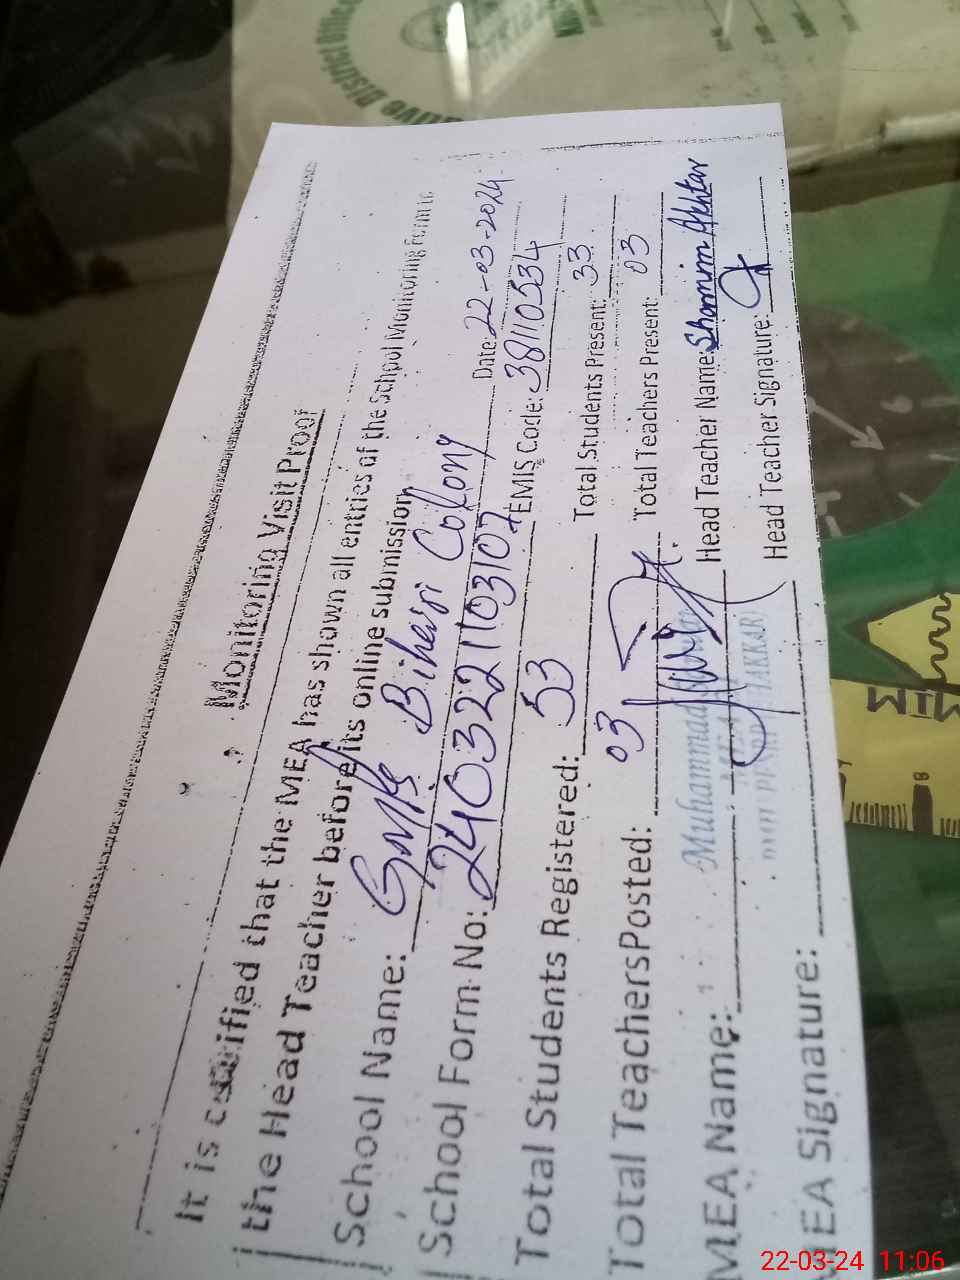 Monitoring Visit Proof
It is certified that the MEA has shown all entries of the School Monitoring Form to
the Head Teacher before its online submission.
School Name: GMPS Bihari Colony Date: 22-03-2024
School Form No: 2403221103107 EMIS Code: 38110534
Total Students Registered: 53 Total Students Present: 33
Total Teachers Posted: 03 Total Teachers Present: 03
MEA Name: Muhammad Head Teacher Name: Shamim Akhtar
MEA Signature: Head Teacher Signature:
22-03-24 11:06